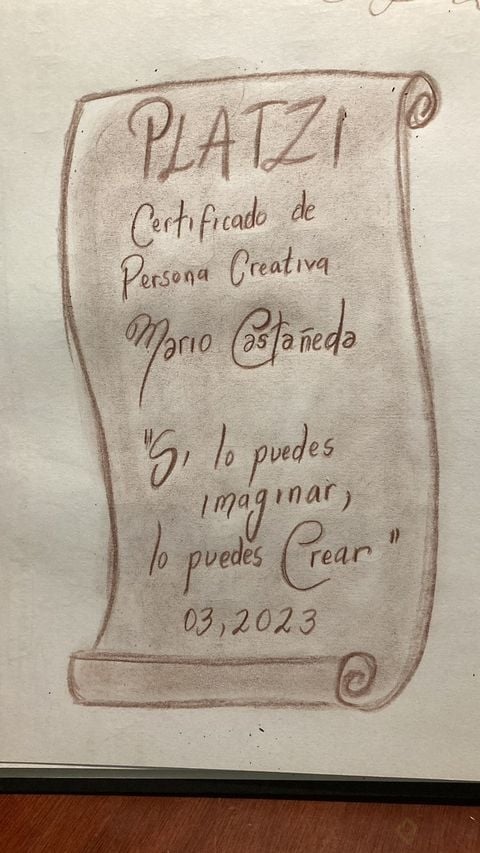 PLATZI
Certificado de
Persona Creativa
Mario Castañeda
"Si lo puedes
imaginar,
lo puedes Crear"
03,2023